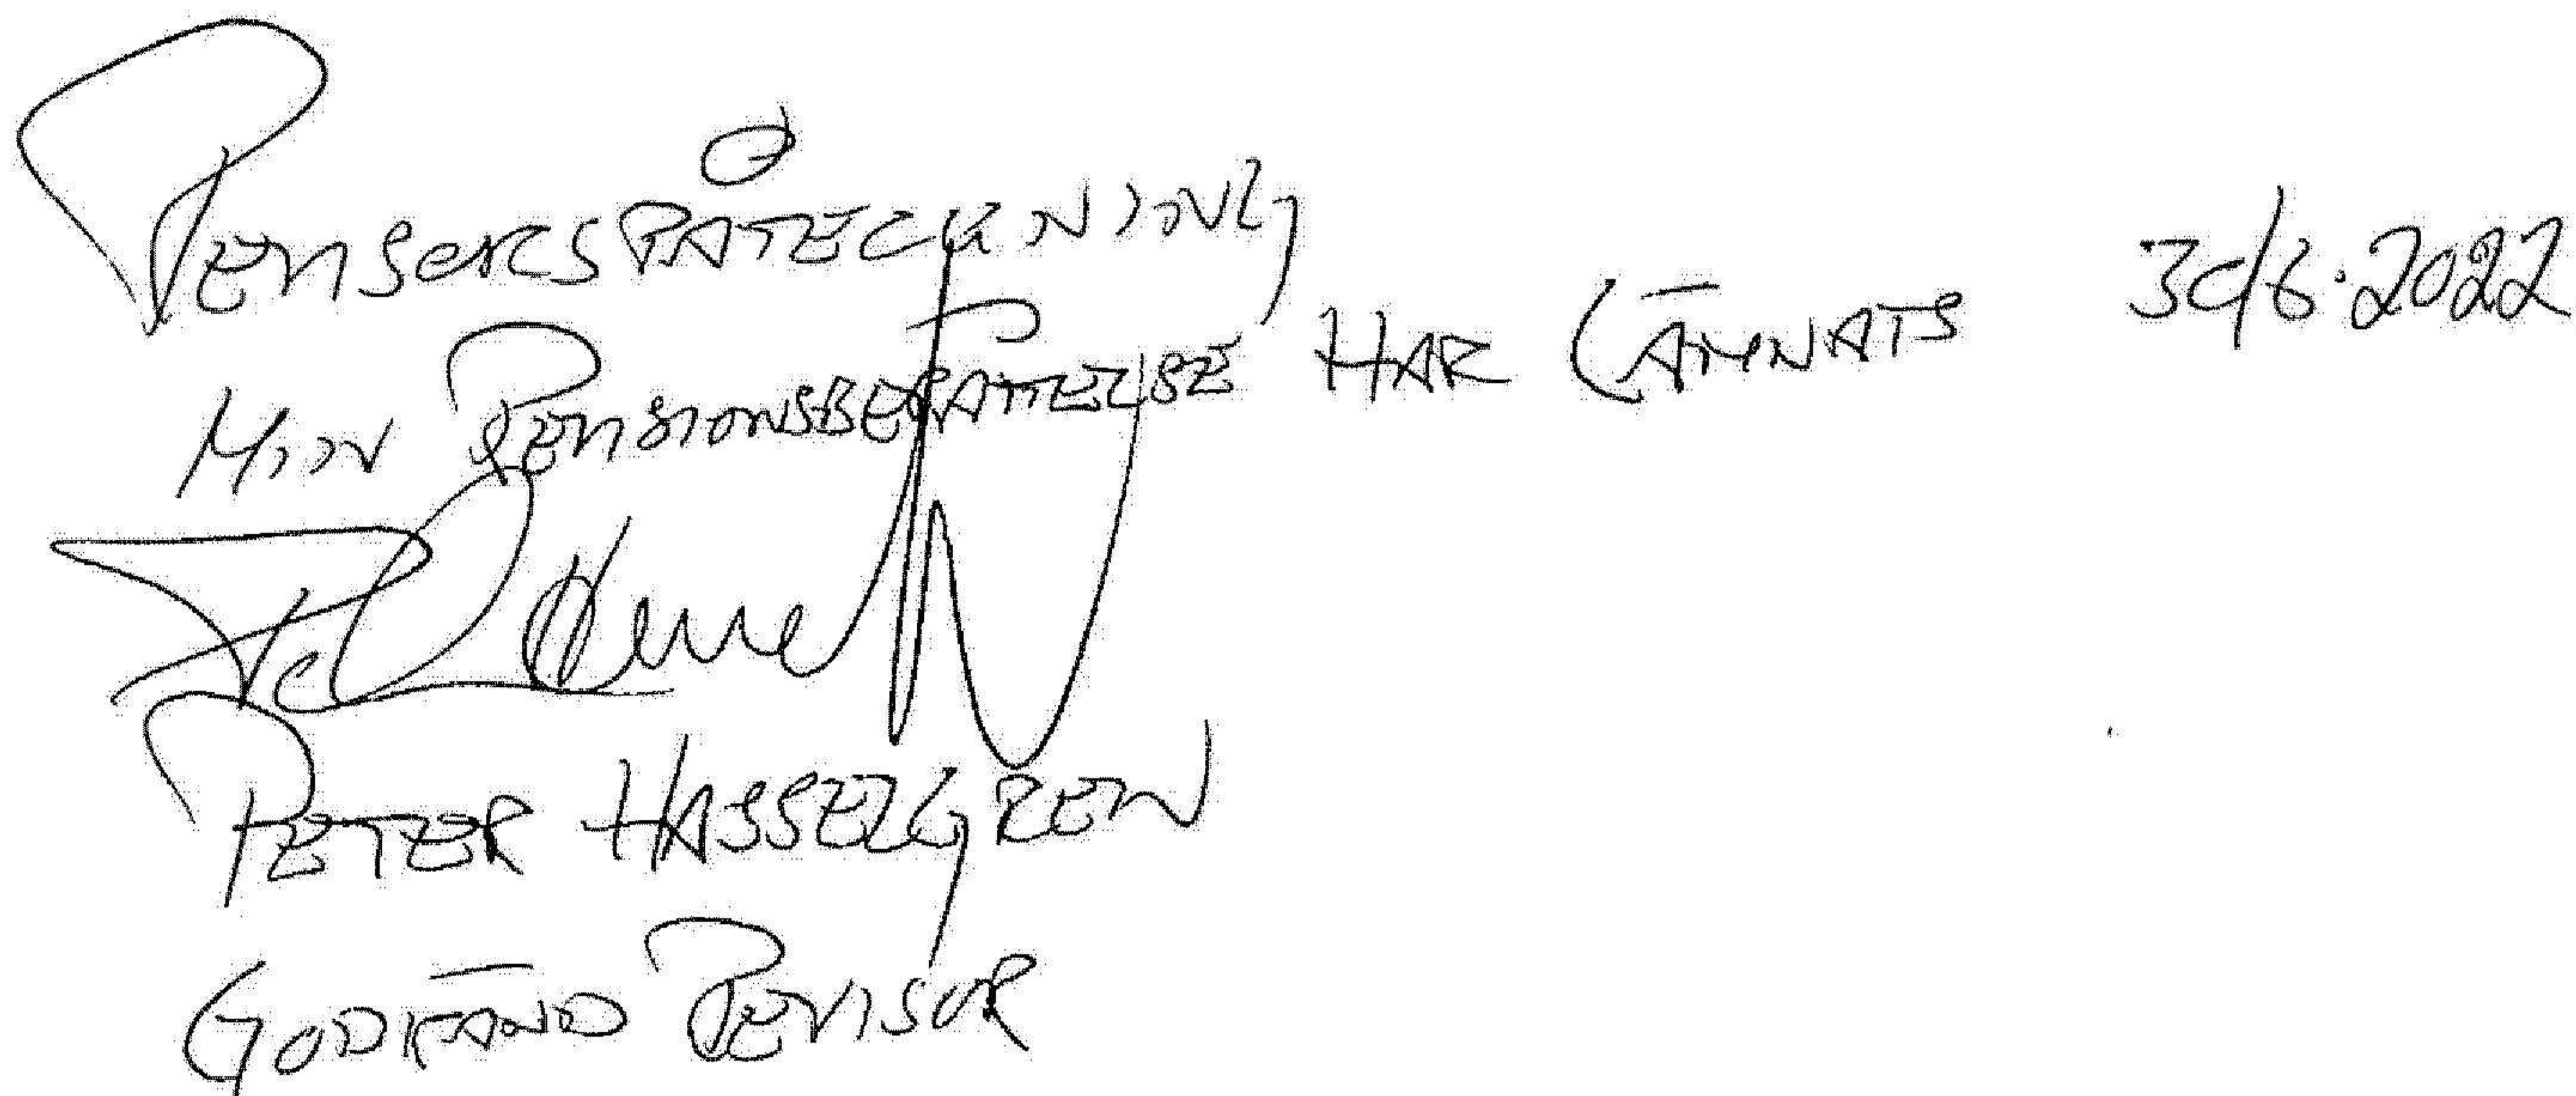 REVISORSPÅTECKNING
MIN REVISIONSBERÄTTELSE HAR LÄMNATS 30/6.2022
PETER HASSELGREN
GODKÄND REVISOR